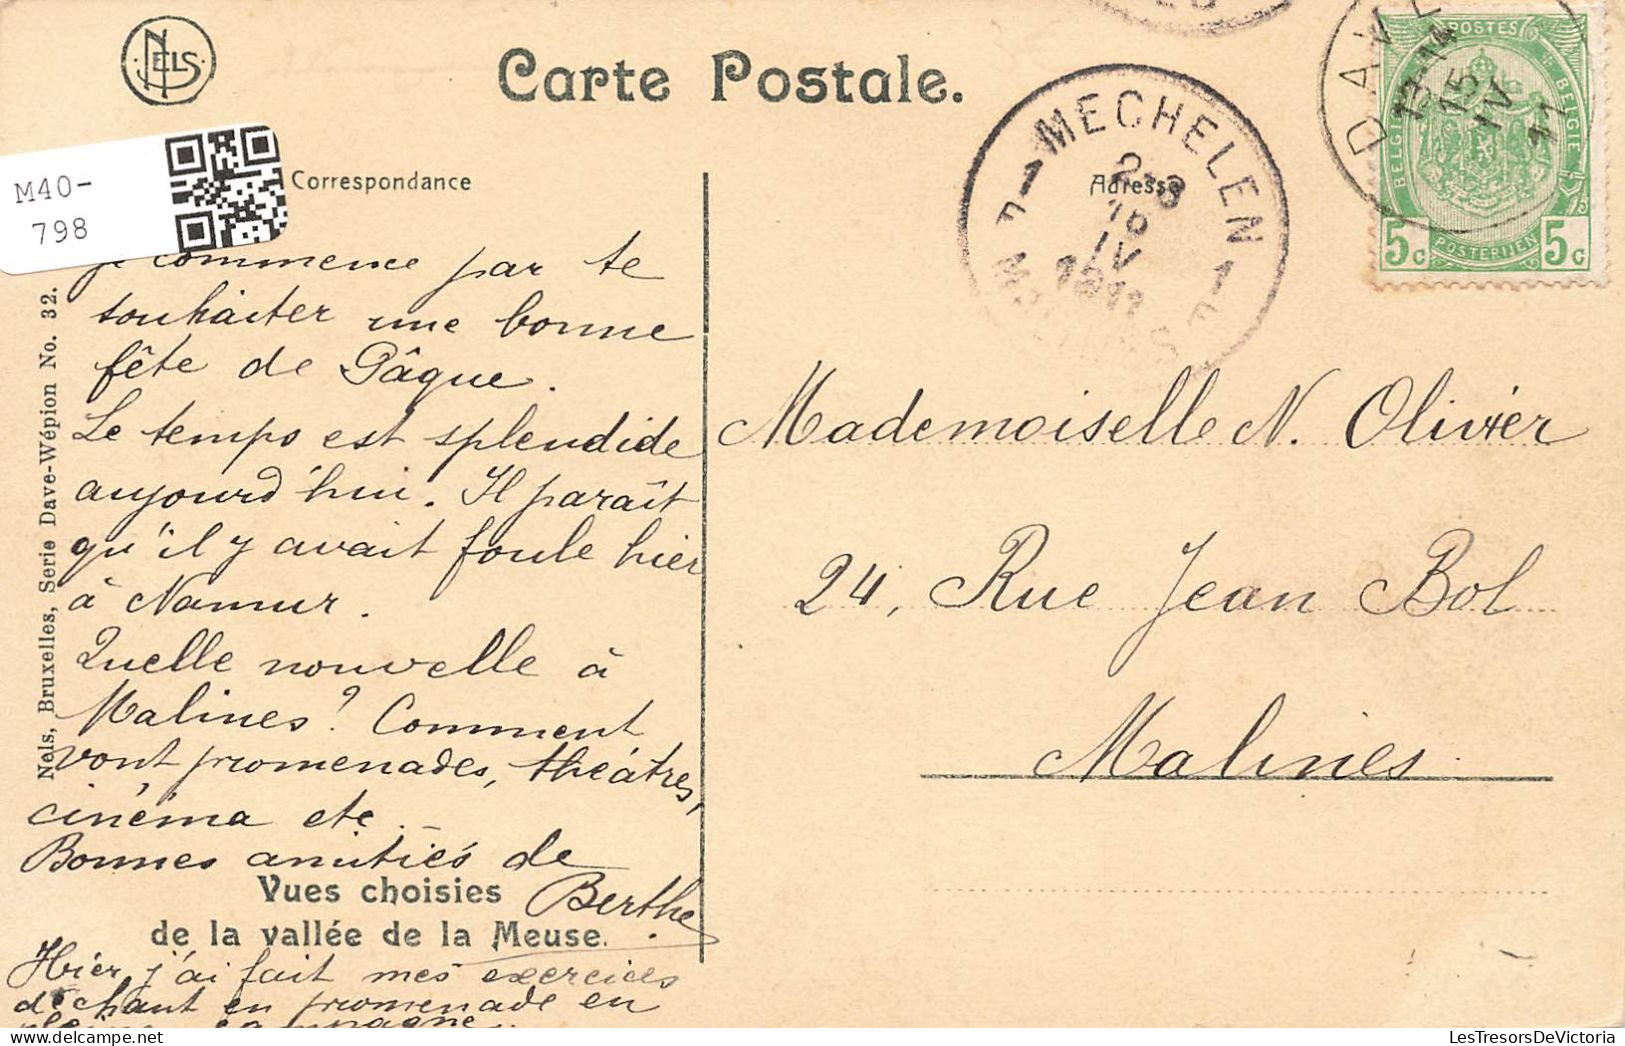 NELS
Carte Postale.
M40-
798
Correspondance
Adresse
MECHELEN
1 1
2-3
16
IV
1911
DAVE
13-14
15
IV
11
POSTES
BELGIQUE
BELGIE
5c POSTERIJEN 5c
Je commence par te
souhaiter une bonne
fête de Pâque.
Le temps est splendide
aujourd'hui. Il paraît
qu'il y avait foule hier
à Namur.
Quelle nouvelle à
Malines? Comment
vont promenades, théâtres,
cinéma etc.
Bonnes amitiés de
Berthe.
Hier, j'ai fait mes exercices
de chant en promenade en
pleine campagne.
Vues choisies
de la vallée de la Meuse.
Nels, Bruxelles, Serie Dave-Wépion No. 32.
Mademoiselle N. Olivier
24, Rue Jean Bol
Malines
LesTresorsDeVictoria